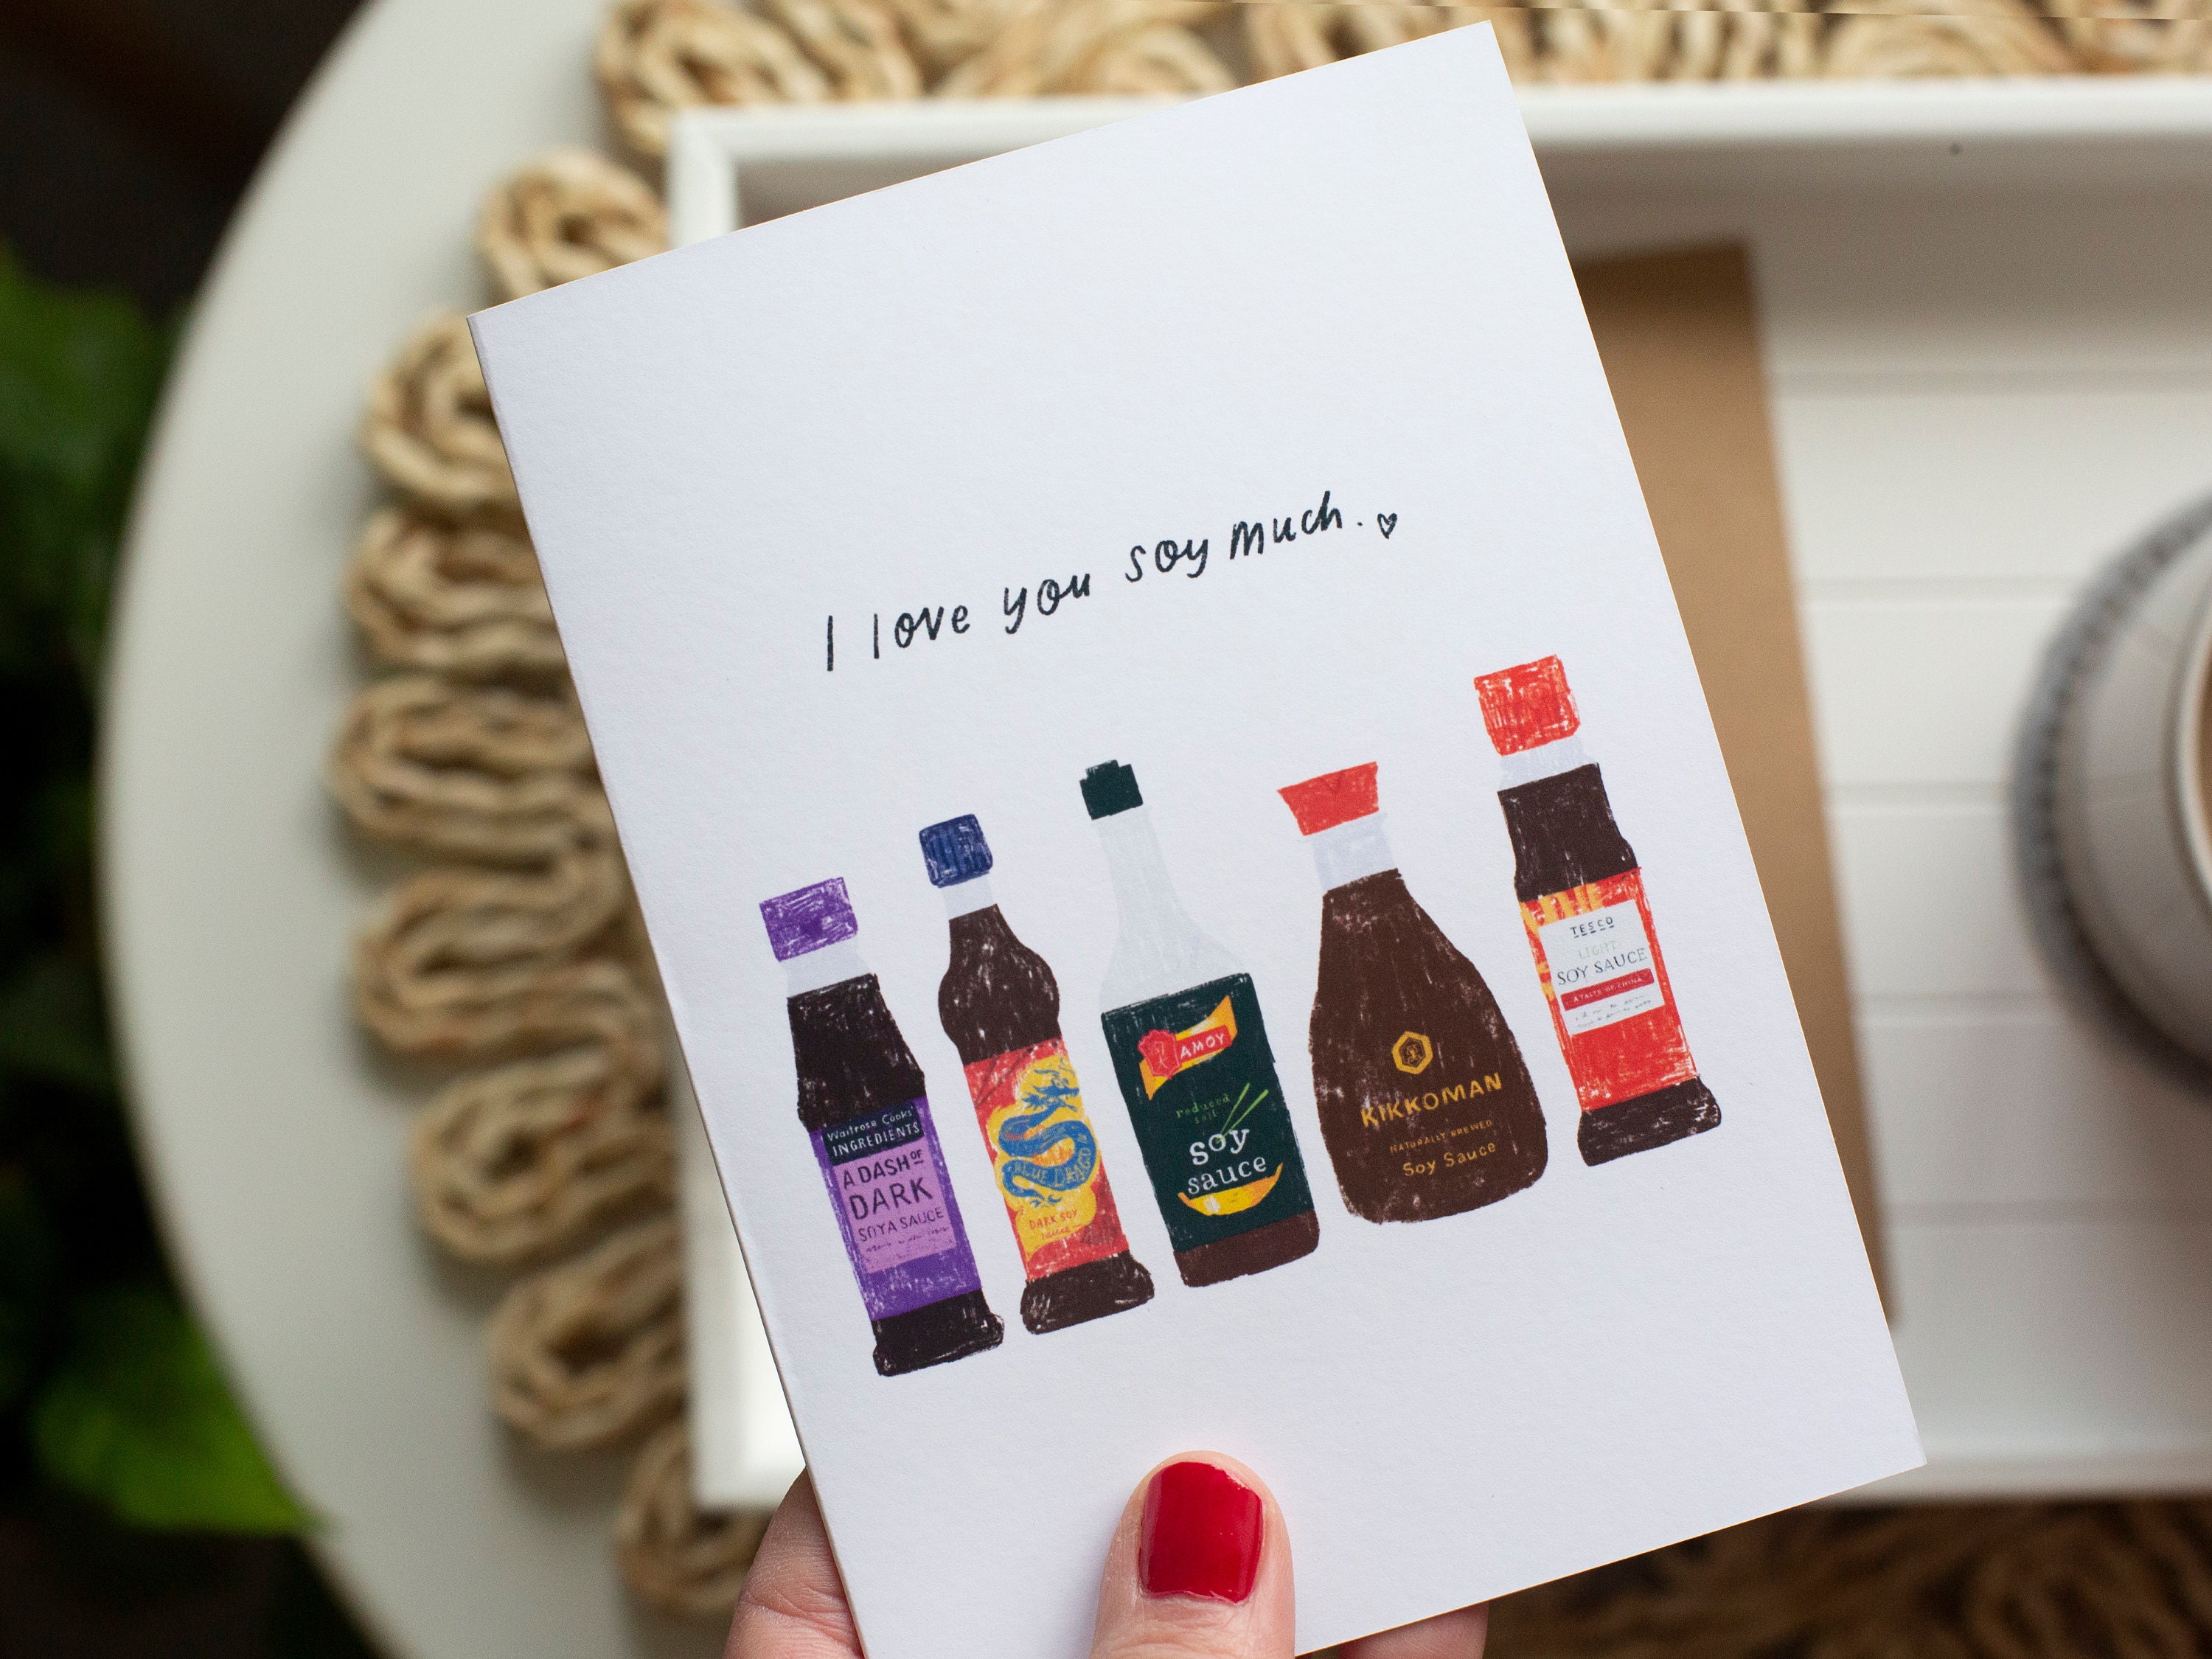 I love you soy much.
Waitrose Cooks'
INGREDIENTS
A DASH OF
DARK
SOYA SAUCE
BLUE DRAGO
DARK SOY
SAUCE
AMOY
reduced
salt
soy
sauce
KIKKOMAN
NATURALLY BREWED
Soy Sauce
TESCO
LIGHT
SOY SAUCE
A TASTE OF CHINA